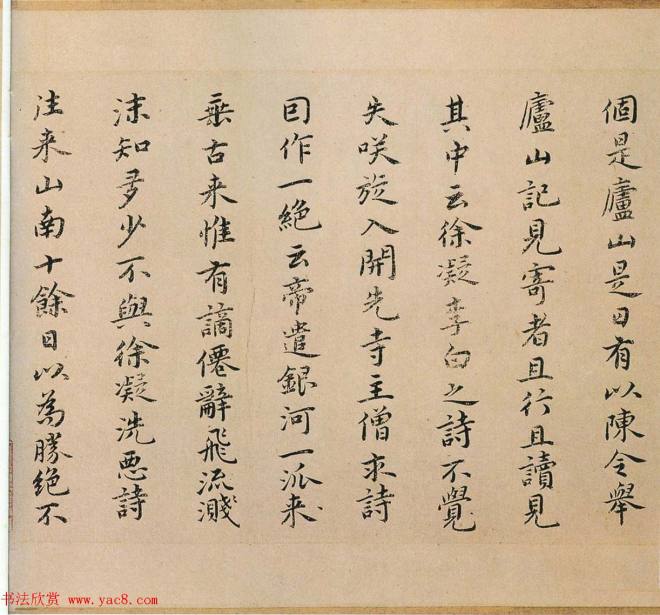 個是廬山是日有以陳令舉
廬山記見寄者且行且讀見
其中云徐凝李白之詩不覺
失咲旋入開先寺主僧求詩
囙作一絕云帝遣銀河一泒来
垂古来惟有謫僊辭飛流濺
沫知多少不與徐凝洗惡詩
往来山南十餘日以為勝絕不
书法欣赏 www.yac8.com